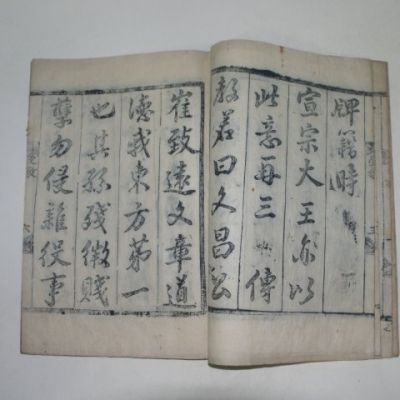 牌籍時
宣宗大王亦以
此意再三傳
教若曰文昌公
崔致遠文章道
德我東方第一
也其孫殘微賤
孽勿侵雜役事